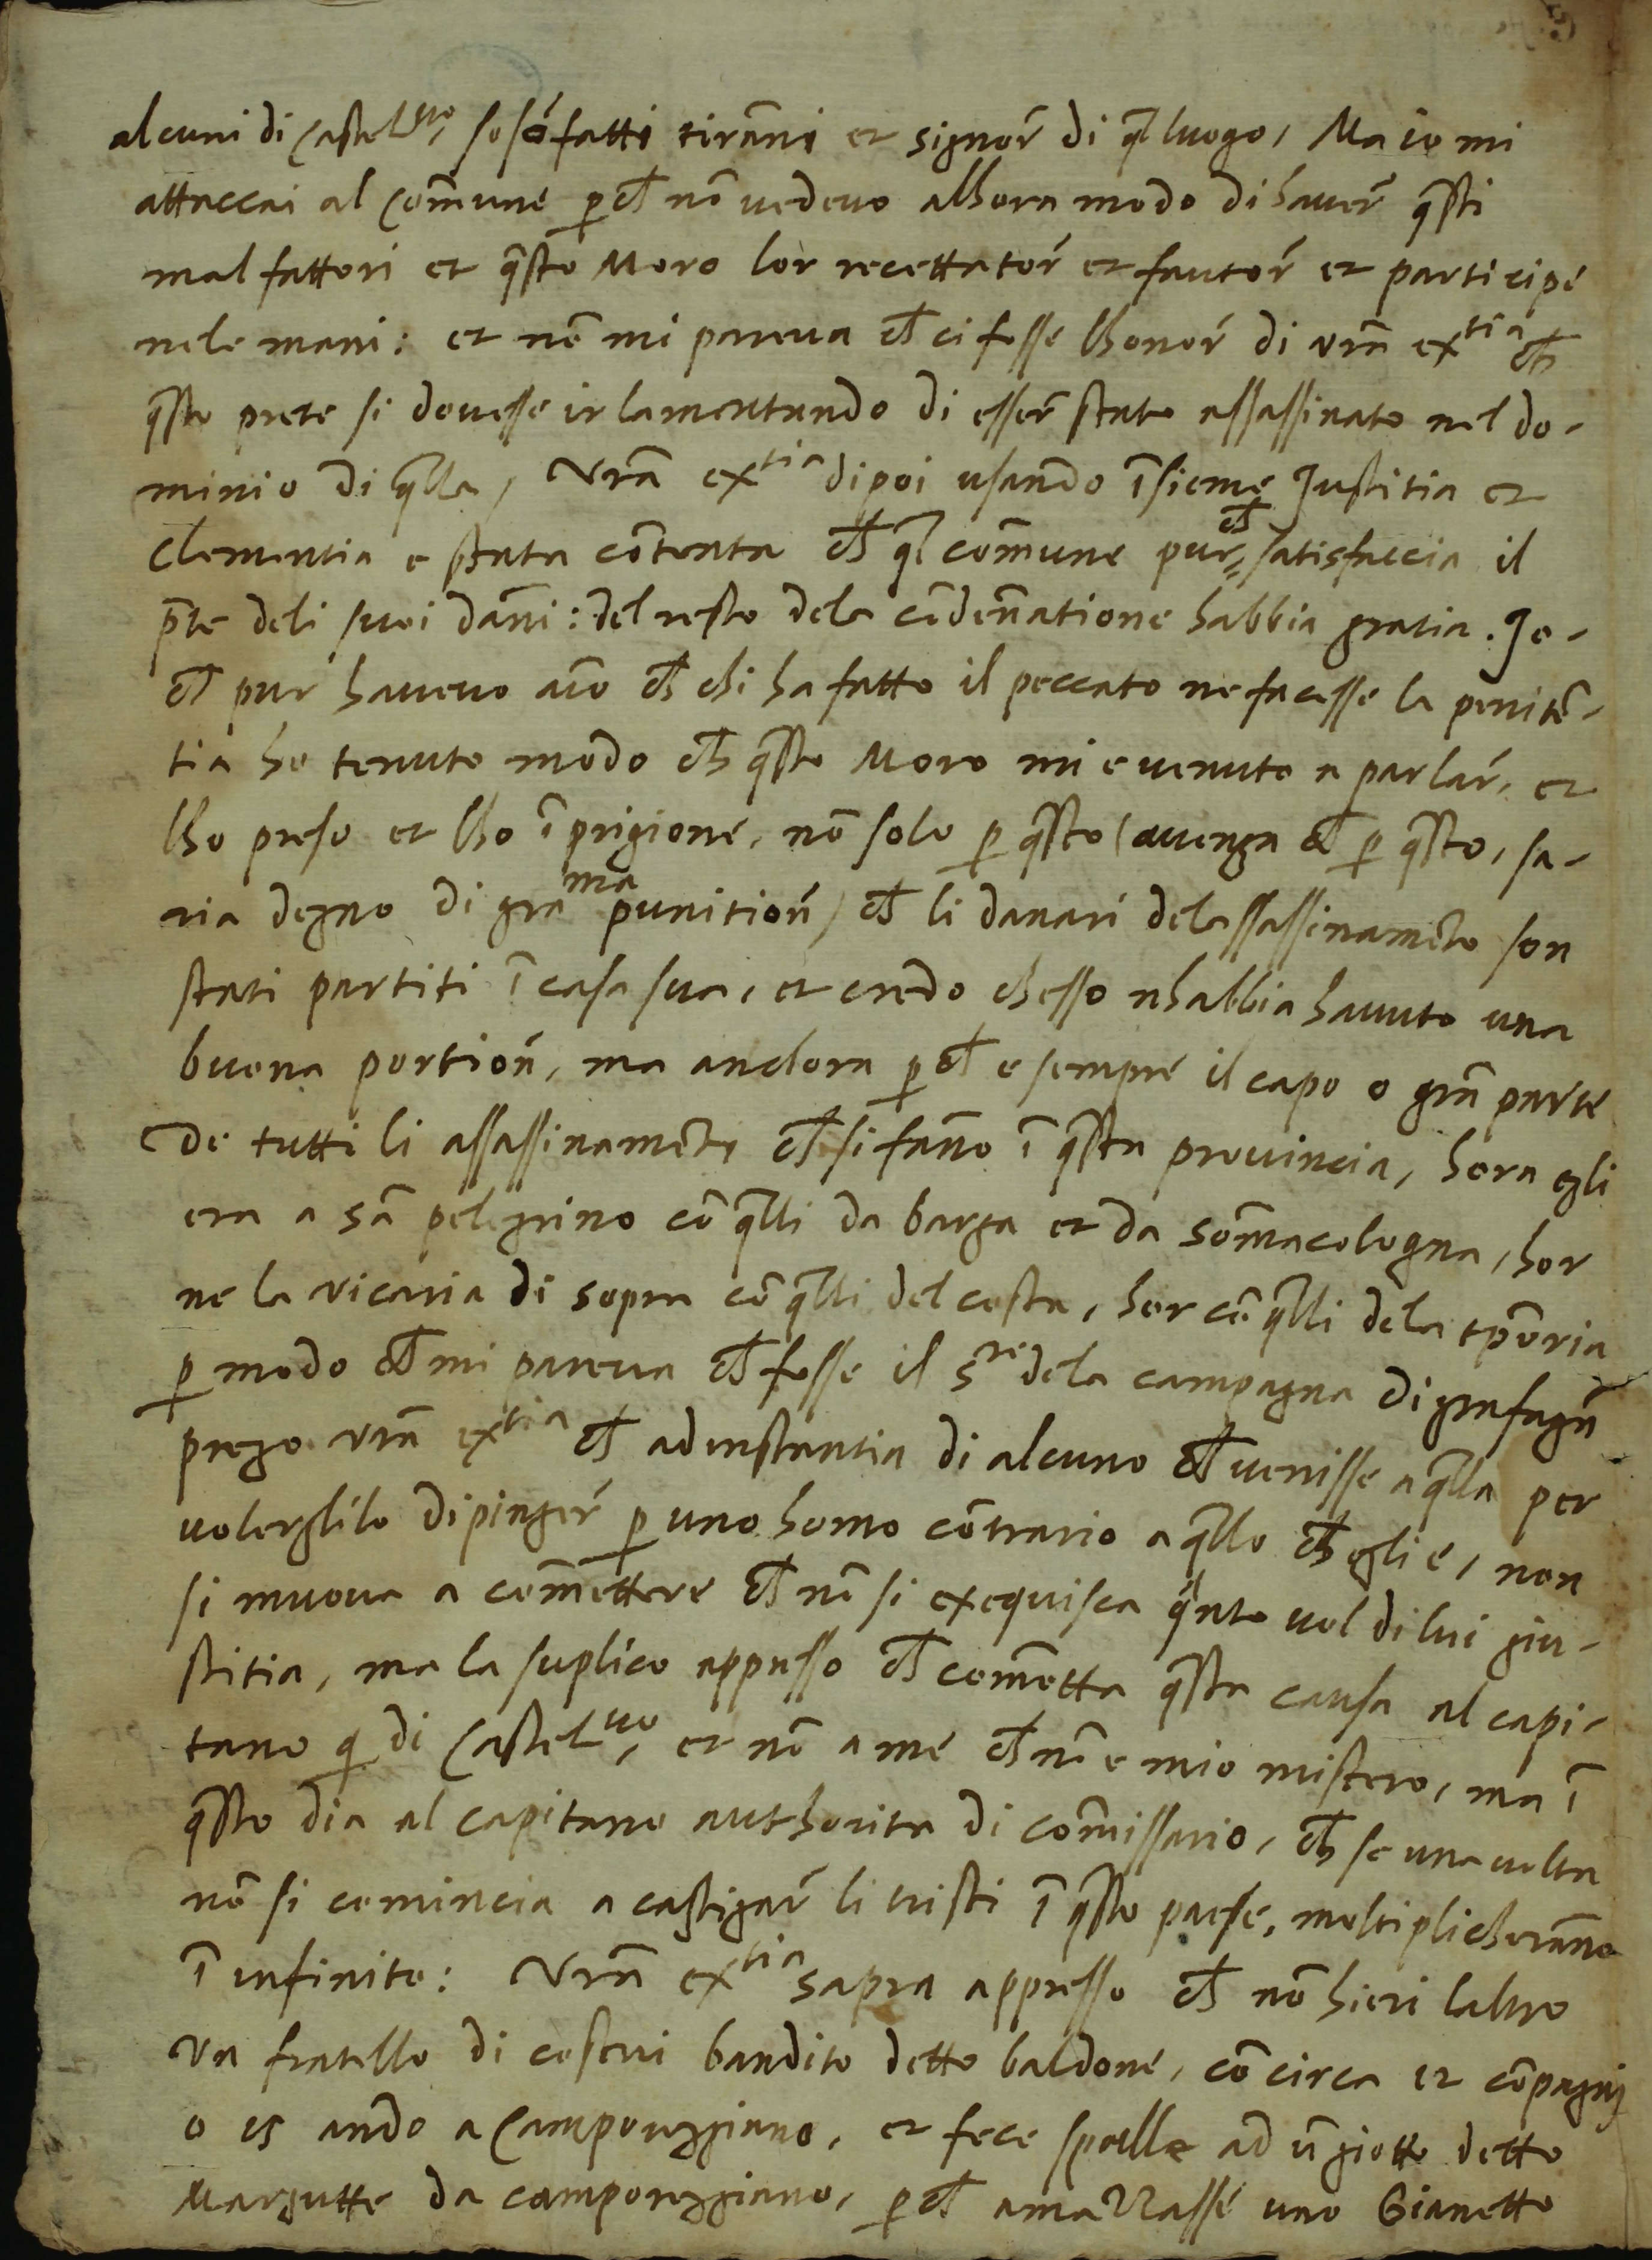 alcuni di Castel^vo, so sõ fatti tirãni et signor̃ di q̃l luogo, Ma io mi
attaccai al Com̃une p̱ch̃ nõ vedevo alhora modo di haver̃ q̃sti
malfattori et q̃sto Moro lor recettator̃ et fautor̃ et participe
nele mani: et nõ mi pareva ch̃ ci fosse lhonor̃ di vr̃a ex^tia ch̃
q̃sto prete si dovesse ir lamentando di esser̃ stato assassinato nel do-
minio di q̃lla, Vr̃a ex^tia dipoi usando ĩsieme Justitia et
Clementia e stata cõtenta ch̃ q̃l com̃une pur, ch̃ satisfaccia il
p̃te deli suoi dañi: del resto dela cõdeñatione habbia gratia. Io-
ch̃ pur havevo aĩo ch̃ chi ha fatto il peccato ne facesse la penitẽ-
tia ho tenuto modo ch̃ q̃sto Moro mi e venuto a parlar̃, et
lho preso et lho ĩ prigione, nõ solo p̱ q̃sto (avenga ch̃ p̱ q̃sto, sa-
ria degno di gra^ma punition̄) ch̃ li danari delassassinamẽto son
stati partiti ĩ casa sua, et credo chesso nhabbia havuto una
buona portion̄, ma anchora p̱ch̃ e sempre il capo o grã parte
de tutti li assassinamẽti ch̃ si fãno ĩ q̃sta provincia, hora egli
era a sã pelegrino cõ q̃lli da barga et da som̃acologna, hor
ne la vicaria di sopra cõ q̃lli del costa, hor cõ q̃lli dela tp̃oria
p̱ modo ch̃ mi pareva ch̃ fosse il S^re dela campagna di grafagñ
prego vr̃a ex^tia ch̃ ad instantia di alcuno ch̃ venisse a q̃lla per
volerglilo dipinger̃ p̱ uno homo cõtrario a q̃llo ch̃ egli e, non
si muova a com̃ettere ch̃ nõ si exequisca q̃nto vol di lui giu-
stitia, ma la suplico appresso ch̃ com̃etta q̃sta causa al capi-
tano q̱ di Castel^vo, et nõ a me ch̃ nõ e mio mistero, ma ĩ
q̃sto dia al capitano authorita di com̃issario, ch̃ se una volta
nõ si comincia a castigar̃ li tristi ĩ q̃sto paese, moltiplicherãno
ĩ infinito: Vr̃a ex^tia sapra appresso ch̃ nõ hieri laltro
un fratello di costui bandito detto baldone, cõ circa et cõpagnij
o is ando a Camporeggiano, et fece spalle ad ũ giotto detto
Margutte da camporeggiano, p̱ch̃ amazzasse uno Gianetto